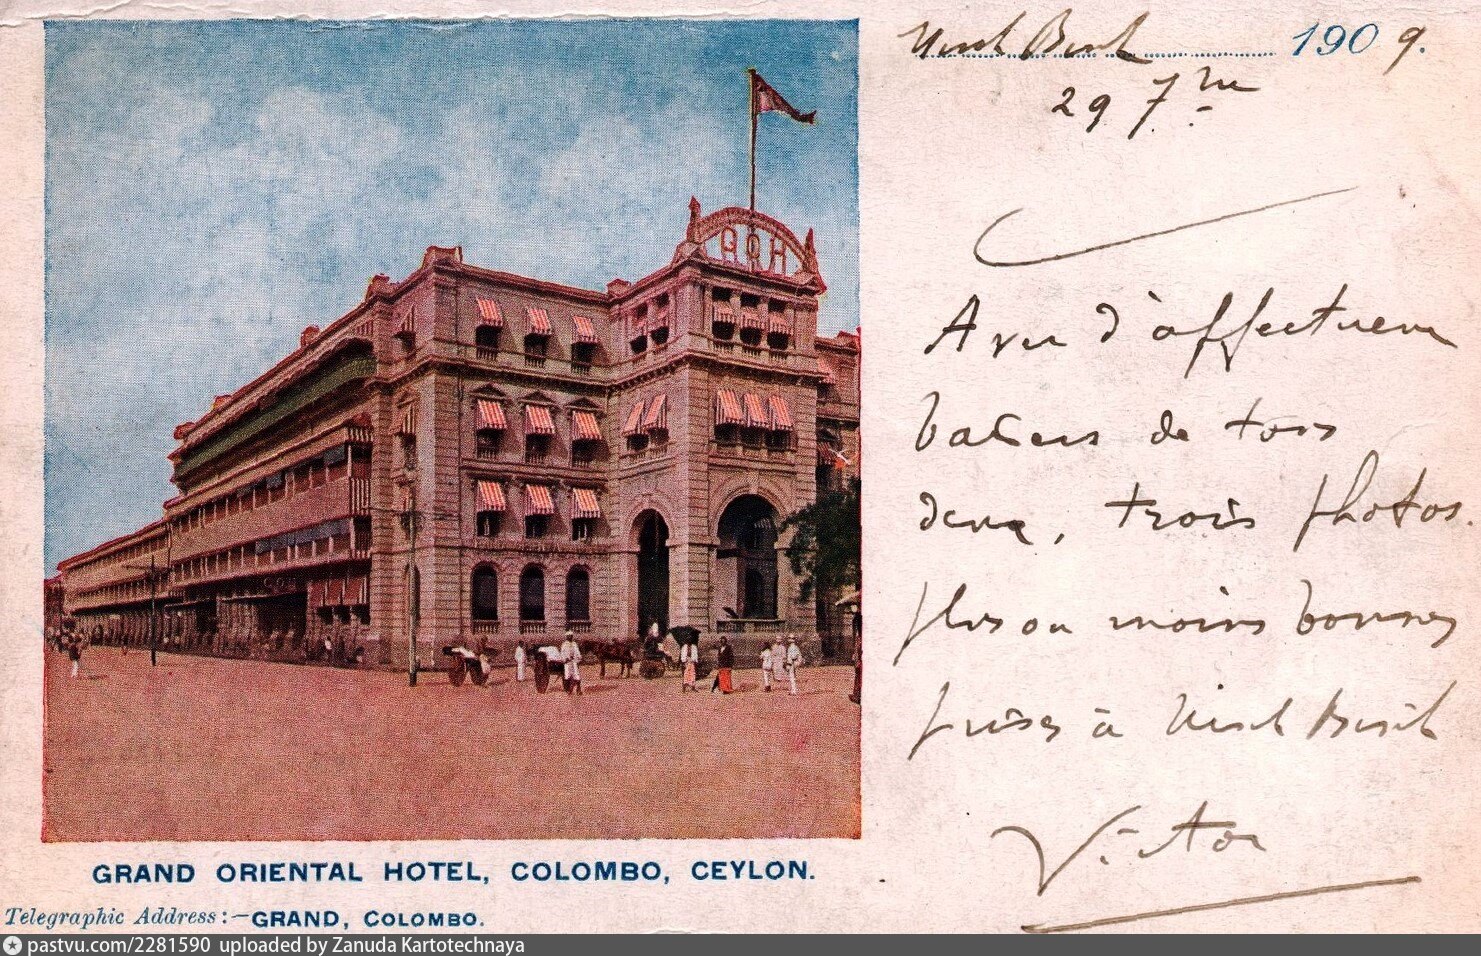 G.O.H
GRAND ORIENTAL HOTEL, COLOMBO, CEYLON.
Telegraphic Address:—GRAND, COLOMBO.
1909.
29 7bre
Avec d'affectueux
baisers de tous
deux, trois photos.
plus ou moins bonnes
prises à
Victor
pastvu.com/2281590 uploaded by Zanuda Kartotechnaya